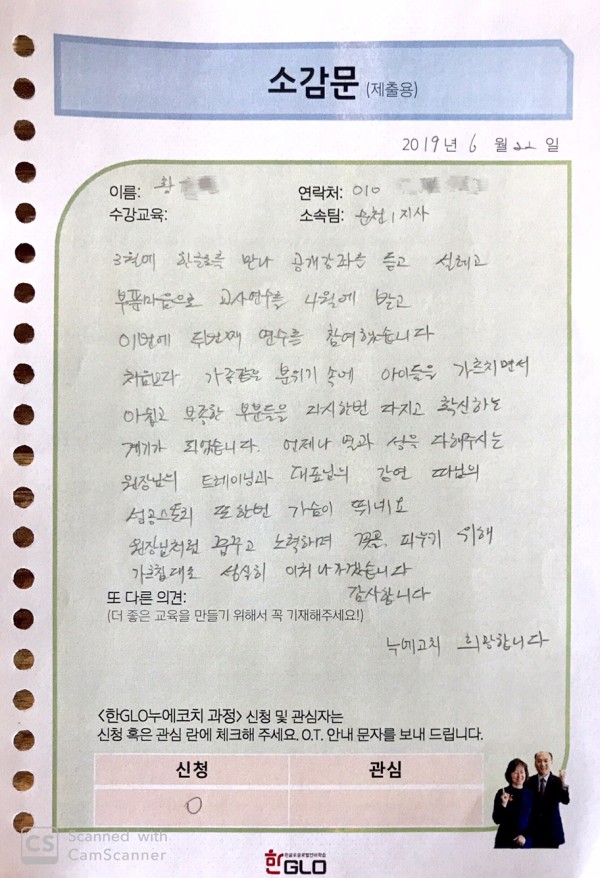 소감문 (제출용)
2019년 6 월 22 일
이름: 황
연락처: 010
수강교육:
소속팀: 순천 1 지사
3월에 한글로를 만나 공개강좌를 듣고 설레고
부푼마음으로 교사연수를 4월에 받고
이번에 두번째 연수를 참여했습니다
처음보다 가족같은 분위기 속에 아이들을 가르치면서
아쉽고 부족한 부분들을 다시한번 다지고 확신하는
계기가 되었습니다. 언제나 열과 성을 다해주시는
원장님의 트레이닝과 대표님의 강연 따님의
성공스토리 또한번 가슴이 뛰네요
원장님처럼 꿈꾸고 노력하며 꽃을 피우기 위해
가르침대로 성실히 이겨나가겠습니다
감사합니다
또 다른 의견:
(더 좋은 교육을 만들기 위해서 꼭 기재해주세요!)
누에고치 희망합니다
<한GLO누에코치 과정> 신청 및 관심자는
신청 혹은 관심 란에 체크해 주세요. O.T. 안내 문자를 보내 드립니다.
신청 관심
O
CS Scanned with
CamScanner
한GLO